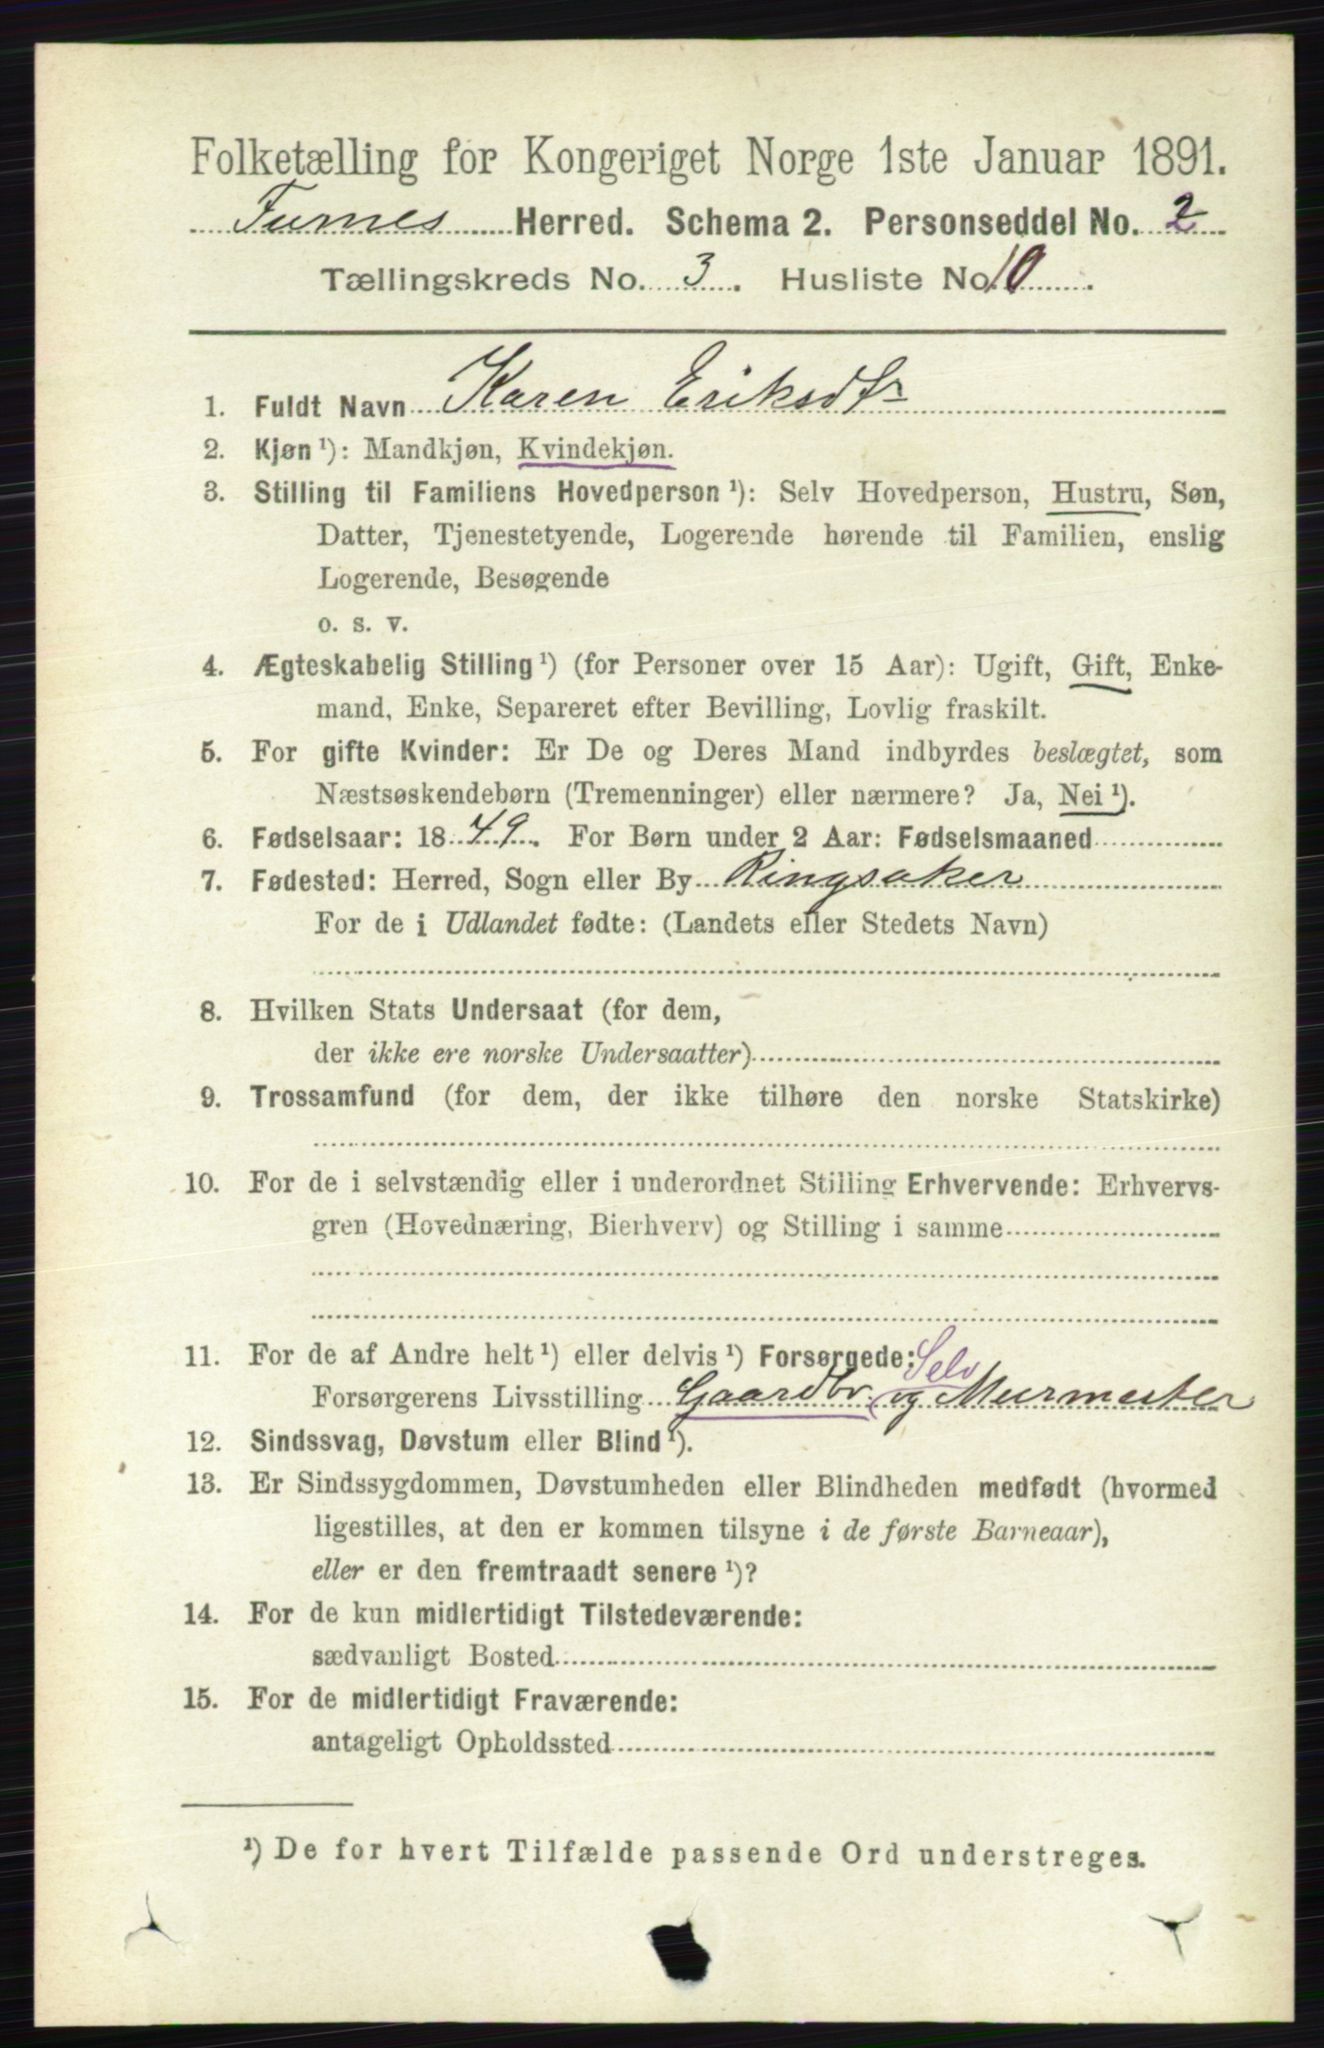 Folketælling for Kongeriget Norge 1ste Januar 1891.
Furnes Herred. Schema 2. Personseddel No. 2
Tællingskreds No. 3. Husliste No. 10.
1. Fuldt Navn Karen Eriksdtr
2. Kjøn ¹): Mandkjøn, Kvindekjøn.
3. Stilling til Familiens Hovedperson ¹): Selv Hovedperson, Hustru, Søn,
Datter, Tjenestetyende, Logerende hørende til Familien, enslig
Logerende, Besøgende
o. s. v.
4. Ægteskabelig Stilling ¹) (for Personer over 15 Aar): Ugift, Gift, Enke-
mand, Enke, Separeret efter Bevilling, Lovlig fraskilt.
5. For gifte Kvinder: Er De og Deres Mand indbyrdes beslægtet, som
Næstsøskendebørn (Tremenninger) eller nærmere? Ja, Nei ¹).
6. Fødselsaar: 1849. For Børn under 2 Aar: Fødselsmaaned
7. Fødested: Herred, Sogn eller By Ringsaker
For de i Udlandet fødte: (Landets eller Stedets Navn)
8. Hvilken Stats Undersaat (for dem,
der ikke ere norske Undersaatter)
9. Trossamfund (for dem, der ikke tilhøre den norske Statskirke)
10. For de i selvstændig eller i underordnet Stilling Erhvervende: Erhvervs-
gren (Hovednæring, Bierhverv) og Stilling i samme
11. For de af Andre helt ¹) eller delvis ¹) Forsørgede: Selv
Forsørgerens Livsstilling Gaardbr. og Murmester
12. Sindssvag, Døvstum eller Blind ¹).
13. Er Sindssygdommen, Døvstumheden eller Blindheden medfødt (hvormed
ligestilles, at den er kommen tilsyne i de første Barneaar),
eller er den fremtraadt senere ¹)?
14. For de kun midlertidigt Tilstedeværende:
sædvanligt Bosted
15. For de midlertidigt Fraværende:
antageligt Opholdssted
¹) De for hvert Tilfælde passende Ord understreges.